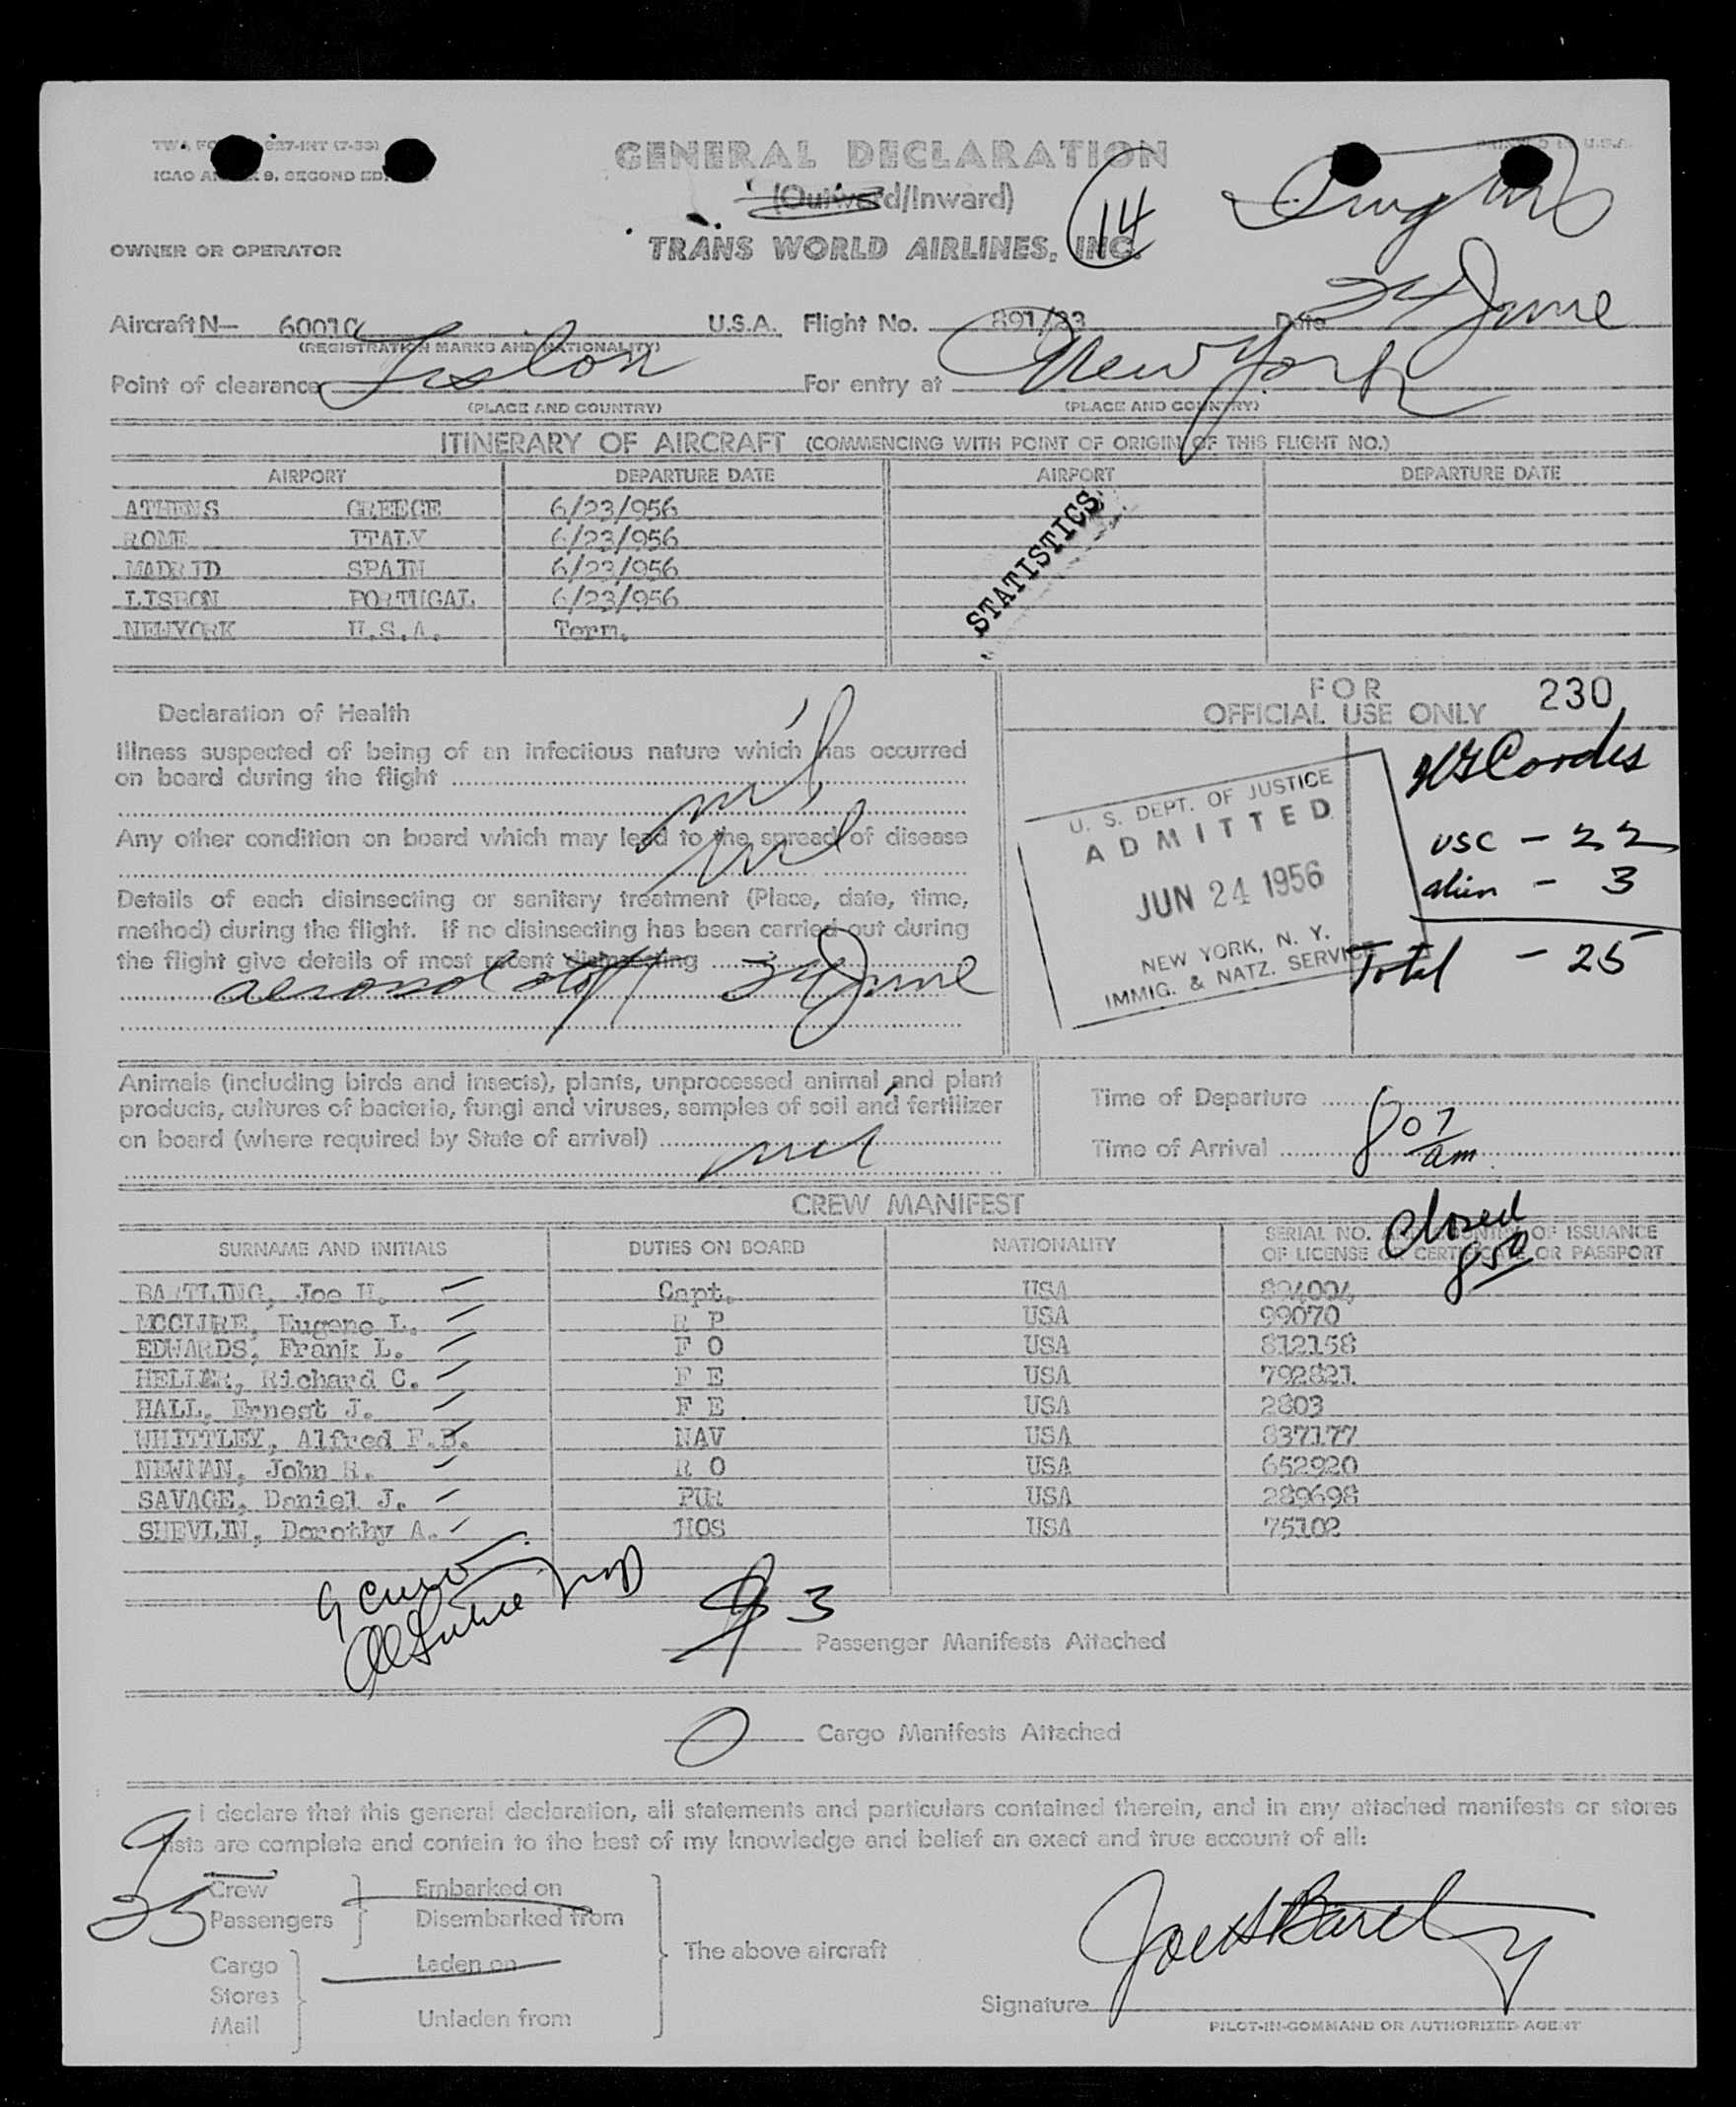 GENERAL DECLARATION
(Outward/Inward)
14
TRANS WORLD AIRLINES, INC.
OWNER OR OPERATOR
24 June
Aircraft N— U.S.A. Flight No. 891/23 Date
(REGISTRATION MARKS AND NATIONALITY)
Point of clearance Lisbon For entry at New York
(PLACE AND COUNTRY) (PLACE AND COUNTRY)
ITINERARY OF AIRCRAFT (COMMENCING WITH POINT OF ORIGIN OF THIS FLIGHT NO.)
AIRPORT DEPARTURE DATE AIRPORT DEPARTURE DATE
ATHENS GREECE 6/23/956
ROME ITALY 6/23/956
MADRID SPAIN 6/23/956
LISBON PORTUGAL 6/23/956
NEWYORK U.S.A. Term.
STATISTICS
FOR
OFFICIAL USE ONLY
230
Declaration of Health
Illness suspected of being of an infectious nature which has occurred
on board during the flight nil
Any other condition on board which may lead to the spread of disease
nil
Details of each disinsecting or sanitary treatment (Place, date, time,
method) during the flight. If no disinsecting has been carried out during
the flight give details of most recent disinsecting
aerosol 24 June
U. S. DEPT. OF JUSTICE
ADMITTED
JUN 24 1956
NEW YORK, N. Y.
IMMIG. & NATZ. SERVICE
Cordes
USC - 22
alien - 3
Total - 25
Animals (including birds and insects), plants, unprocessed animal and plant
products, cultures of bacteria, fungi and viruses, samples of soil and fertilizer
on board (where required by State of arrival)
nil
Time of Departure
Time of Arrival 8 07 am
Closed
850
CREW MANIFEST
SURNAME AND INITIALS DUTIES ON BOARD NATIONALITY SERIAL NO. AND COUNTRY OF ISSUANCE
OF LICENSE OR CERTIFICATE OR PASSPORT
BARTLING, Joe H. Capt. USA 894004
MCCLURE, Eugene L. R P USA 99070
EDWARDS, Frank L. F O USA 812158
HELLER, Richard C. F E USA 792821
HALL, Ernest J. F E USA 2803
WHITTLEY, Alfred F.B. NAV USA 837177
NEWMAN, John R. R O USA 652920
SAVAGE, Daniel J. PUR USA 289698
SHEVLIN, Dorothy A. HOS USA 75102
9 crew
3 Passenger Manifests Attached
0 Cargo Manifests Attached
I declare that this general declaration, all statements and particulars contained therein, and in any attached manifests or stores
lists are complete and contain to the best of my knowledge and belief an exact and true account of all:
9 Crew Embarked on
25 Passengers Disembarked from
The above aircraft
Cargo Laden on
Stores
Mail Unladen from
Signature
PILOT-IN-COMMAND OR AUTHORIZED AGENT